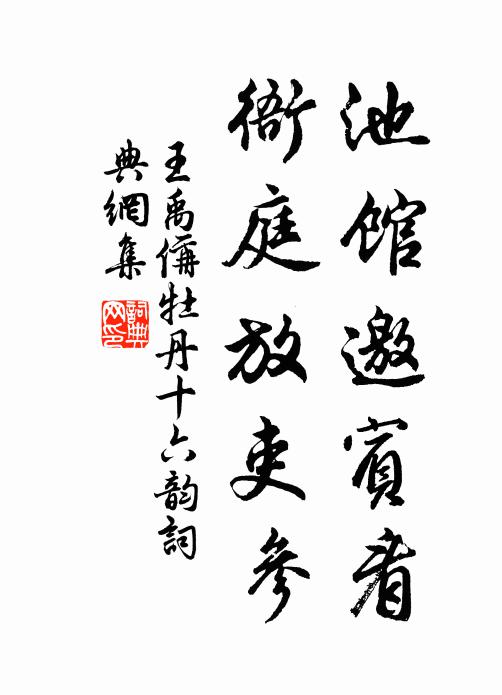 池館邀賓看
衙庭放吏參
王禹偁牡丹十六韵詞
典網集
詞典網印